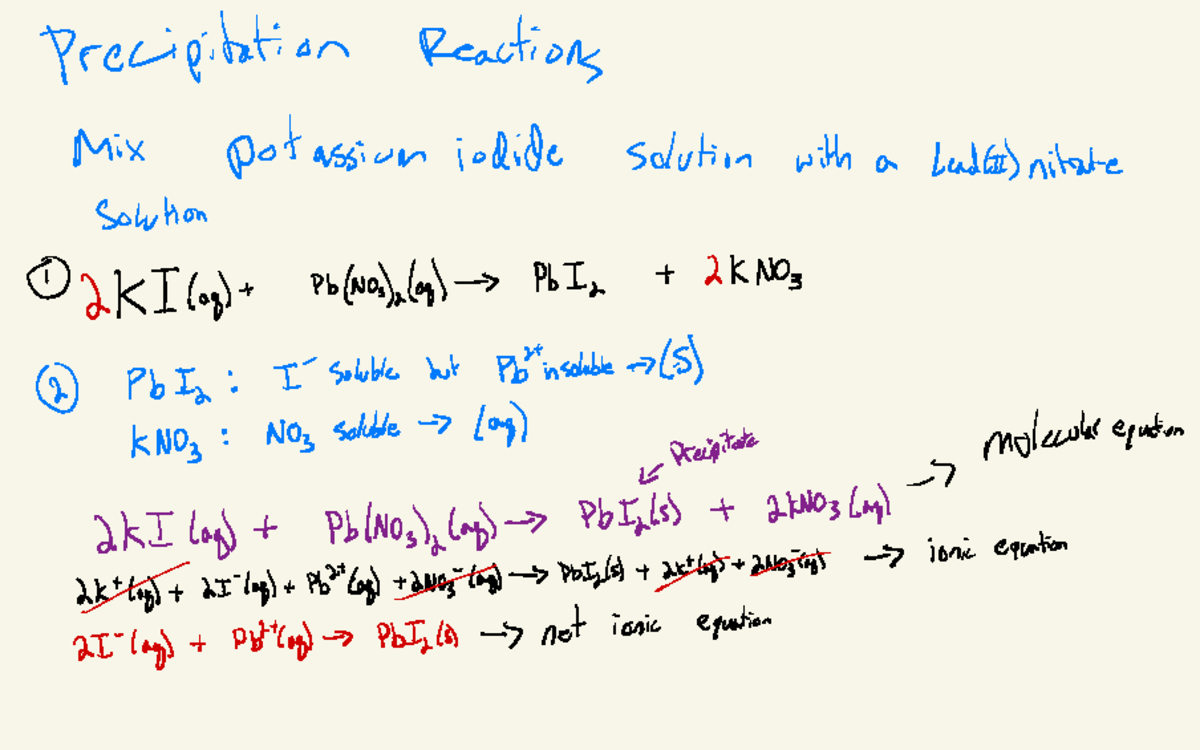 Precipitation Reactions
Mix potassium iodide solution with a Lead(II) nitrate
solution
① 2KI(aq) + Pb(NO₃)₂(aq) → PbI₂ + 2KNO₃
② PbI₂ : I⁻ soluble but Pb²⁺ insoluble → (s)
KNO₃ : NO₃ soluble → (aq)
Precipitate
molecular equation
2KI(aq) + Pb(NO₃)₂(aq) → PbI₂(s) + 2KNO₃(aq) →
2K⁺(aq) + 2I⁻(aq) + Pb²⁺(aq) + 2NO₃⁻(aq) → PbI₂(s) + 2K⁺(aq) + 2NO₃⁻(aq) → ionic equation
2I⁻(aq) + Pb²⁺(aq) → PbI₂(s) → not ionic equation